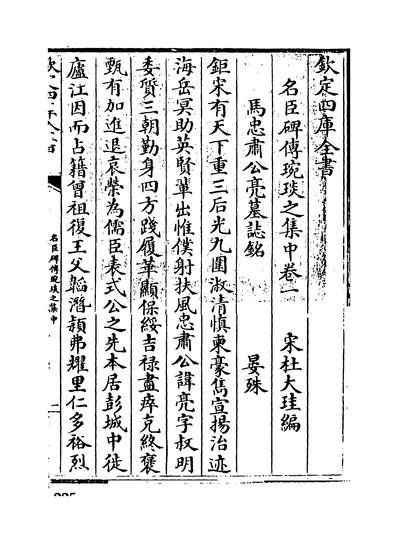 欽定四庫全書
名臣碑傳琬琰之集中卷一　宋杜大珪編
馬忠肅公亮墓誌銘　晏殊
鉅宋有天下重三后光九圍淑清慎柬豪雋宣揚治迹
海岳冥助英賢輩出惟僕射扶風忠肅公諱亮字叔明
委質三朝勤身四方踐履華顯保綏吉禄盡瘁克終褒
甄有加進退哀榮為儒臣表式公之先本居彭城中徙
廬江因而占籍曾祖復王父韜潛頴弗耀里仁多裕烈
名臣碑傳琬琰之集中